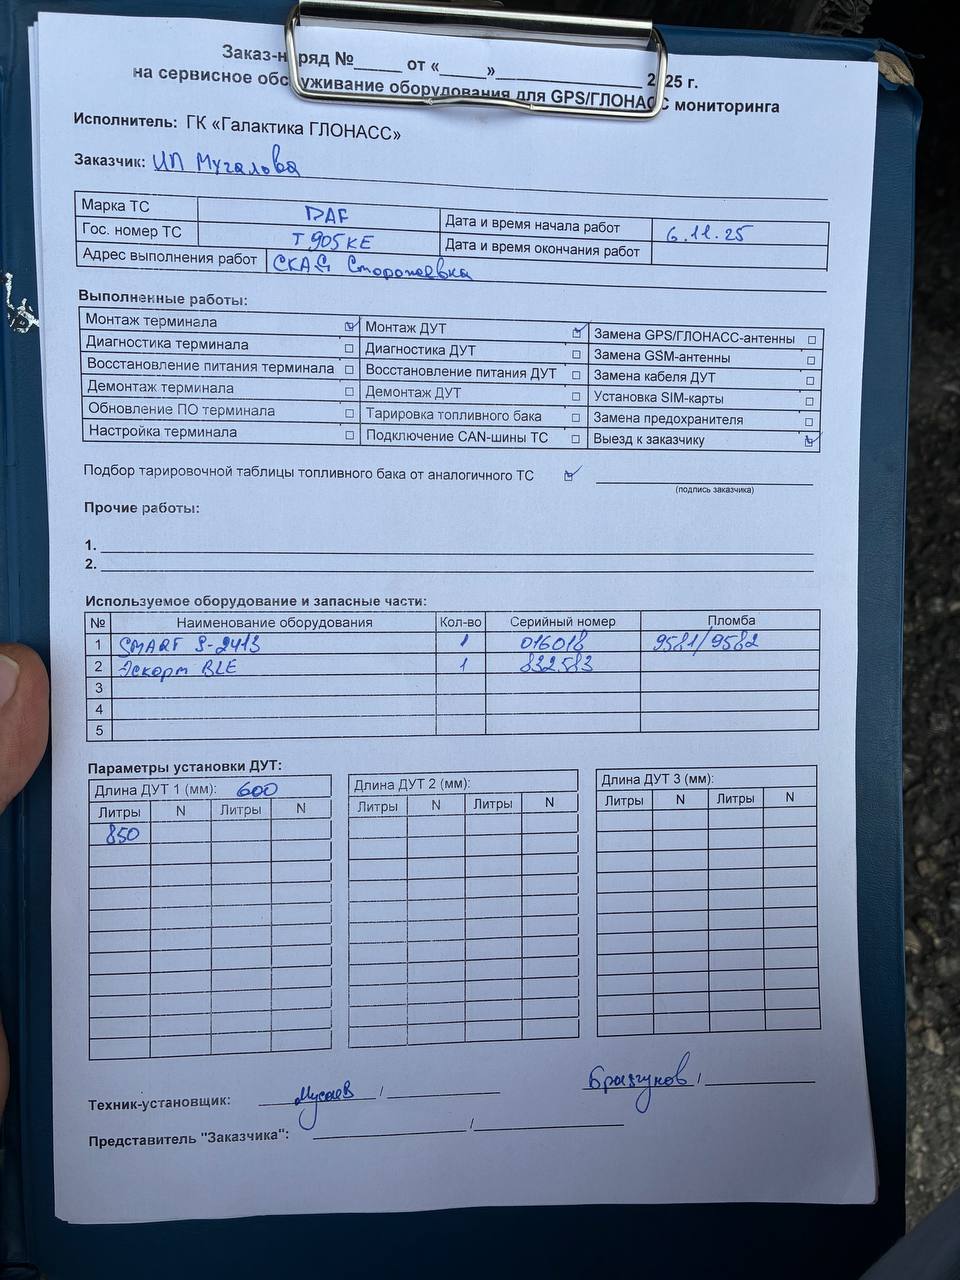 Заказ-наряд №_____ от «_____»_______________ 2025 г.
на сервисное обслуживание оборудования для GPS/ГЛОНАСС мониторинга
Исполнитель: ГК «Галактика ГЛОНАСС»
Заказчик: ИП Мугалова
Марка ТС DAF Дата и время начала работ 6.11.25
Гос. номер ТС Т905КЕ Дата и время окончания работ
Адрес выполнения работ Сторожевка
Выполненные работы:
Монтаж терминала ☑ Монтаж ДУТ ☑ Замена GPS/ГЛОНАСС-антенны □
Диагностика терминала □ Диагностика ДУТ □ Замена GSM-антенны □
Восстановление питания терминала □ Восстановление питания ДУТ □ Замена кабеля ДУТ □
Демонтаж терминала □ Демонтаж ДУТ □ Установка SIM-карты □
Обновление ПО терминала □ Тарировка топливного бака □ Замена предохранителя □
Настройка терминала □ Подключение CAN-шины ТС □ Выезд к заказчику ☑
Подбор тарировочной таблицы топливного бака от аналогичного ТС ☑
(подпись заказчика)
Прочие работы:
1.
2.
Используемое оборудование и запасные части:
№ Наименование оборудования Кол-во Серийный номер Пломба
1 SMART S-2413 1 016018 9581/9582
2 Эскорт BLE 1 832583
3
4
5
Параметры установки ДУТ:
Длина ДУТ 1 (мм): 600 Длина ДУТ 2 (мм): Длина ДУТ 3 (мм):
Литры N Литры N Литры N Литры N Литры N Литры N
850
Техник-установщик: Мусаев / Брызгунов /
Представитель "Заказчика": /